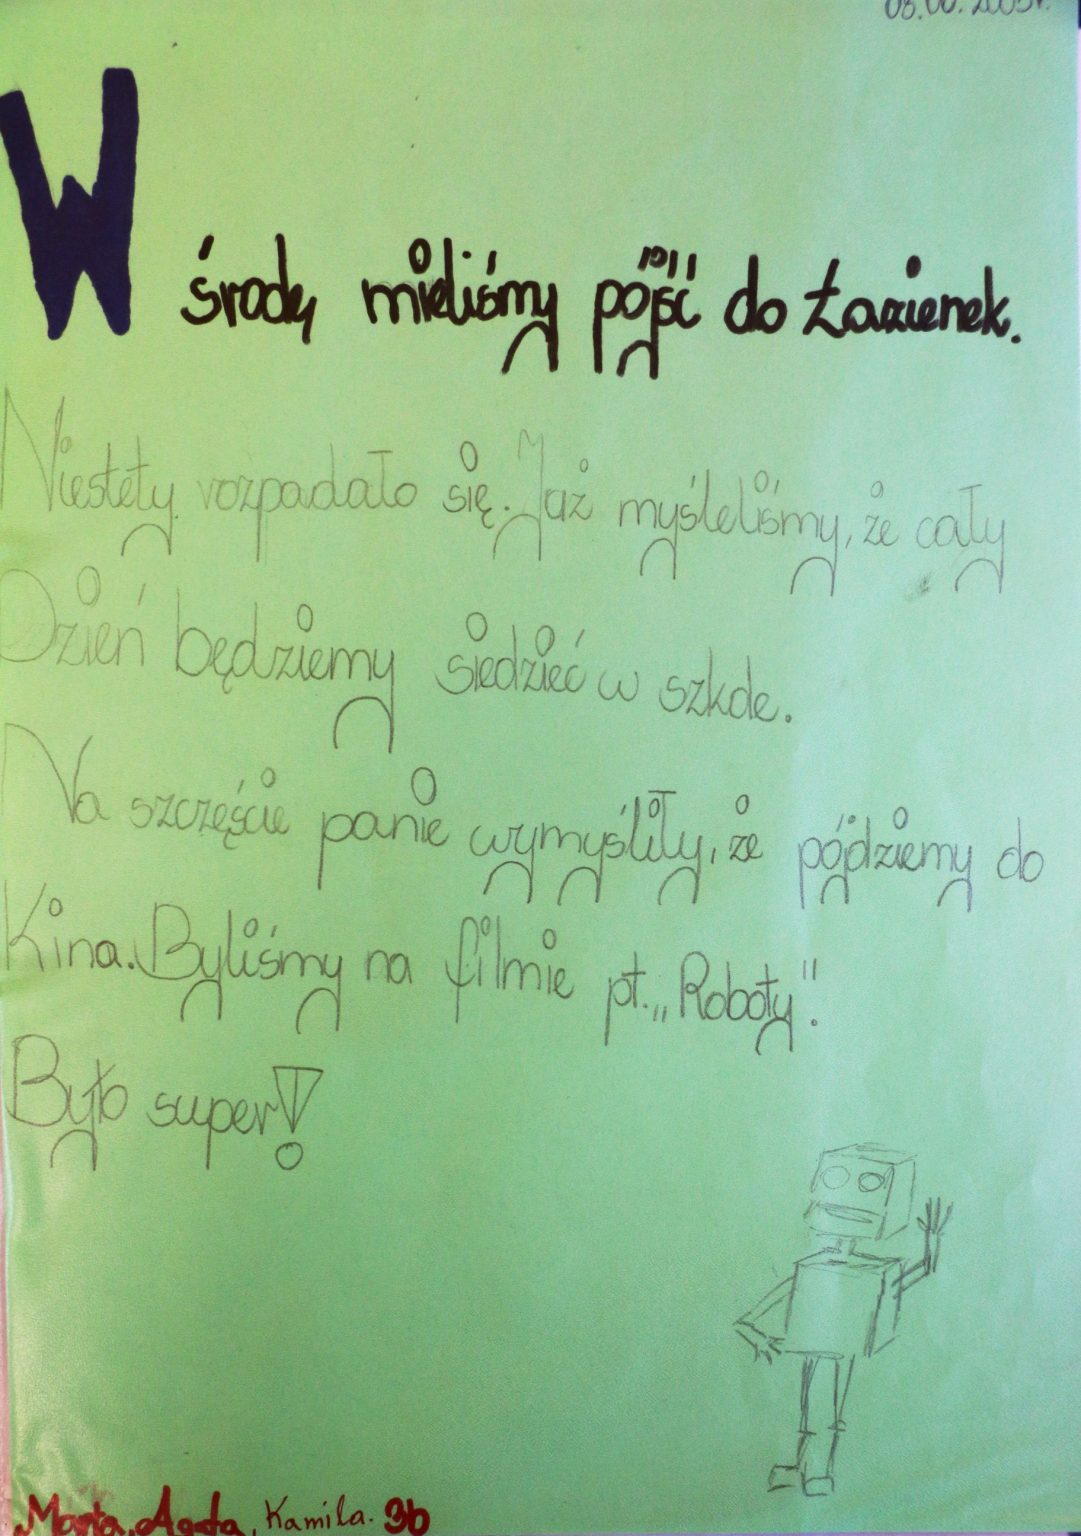 08.06.2005r.
W środę mieliśmy pójść do Łazienek.
Niestety rozpadało się. Już myśleliśmy, że cały
Dzień będziemy siedzieć w szkole.
Na szczęście panie wymyśliły, że pójdziemy do
Kina. Byliśmy na filmie pt. „Roboty".
Było super!
Marta, Agata, Kamila. 3b